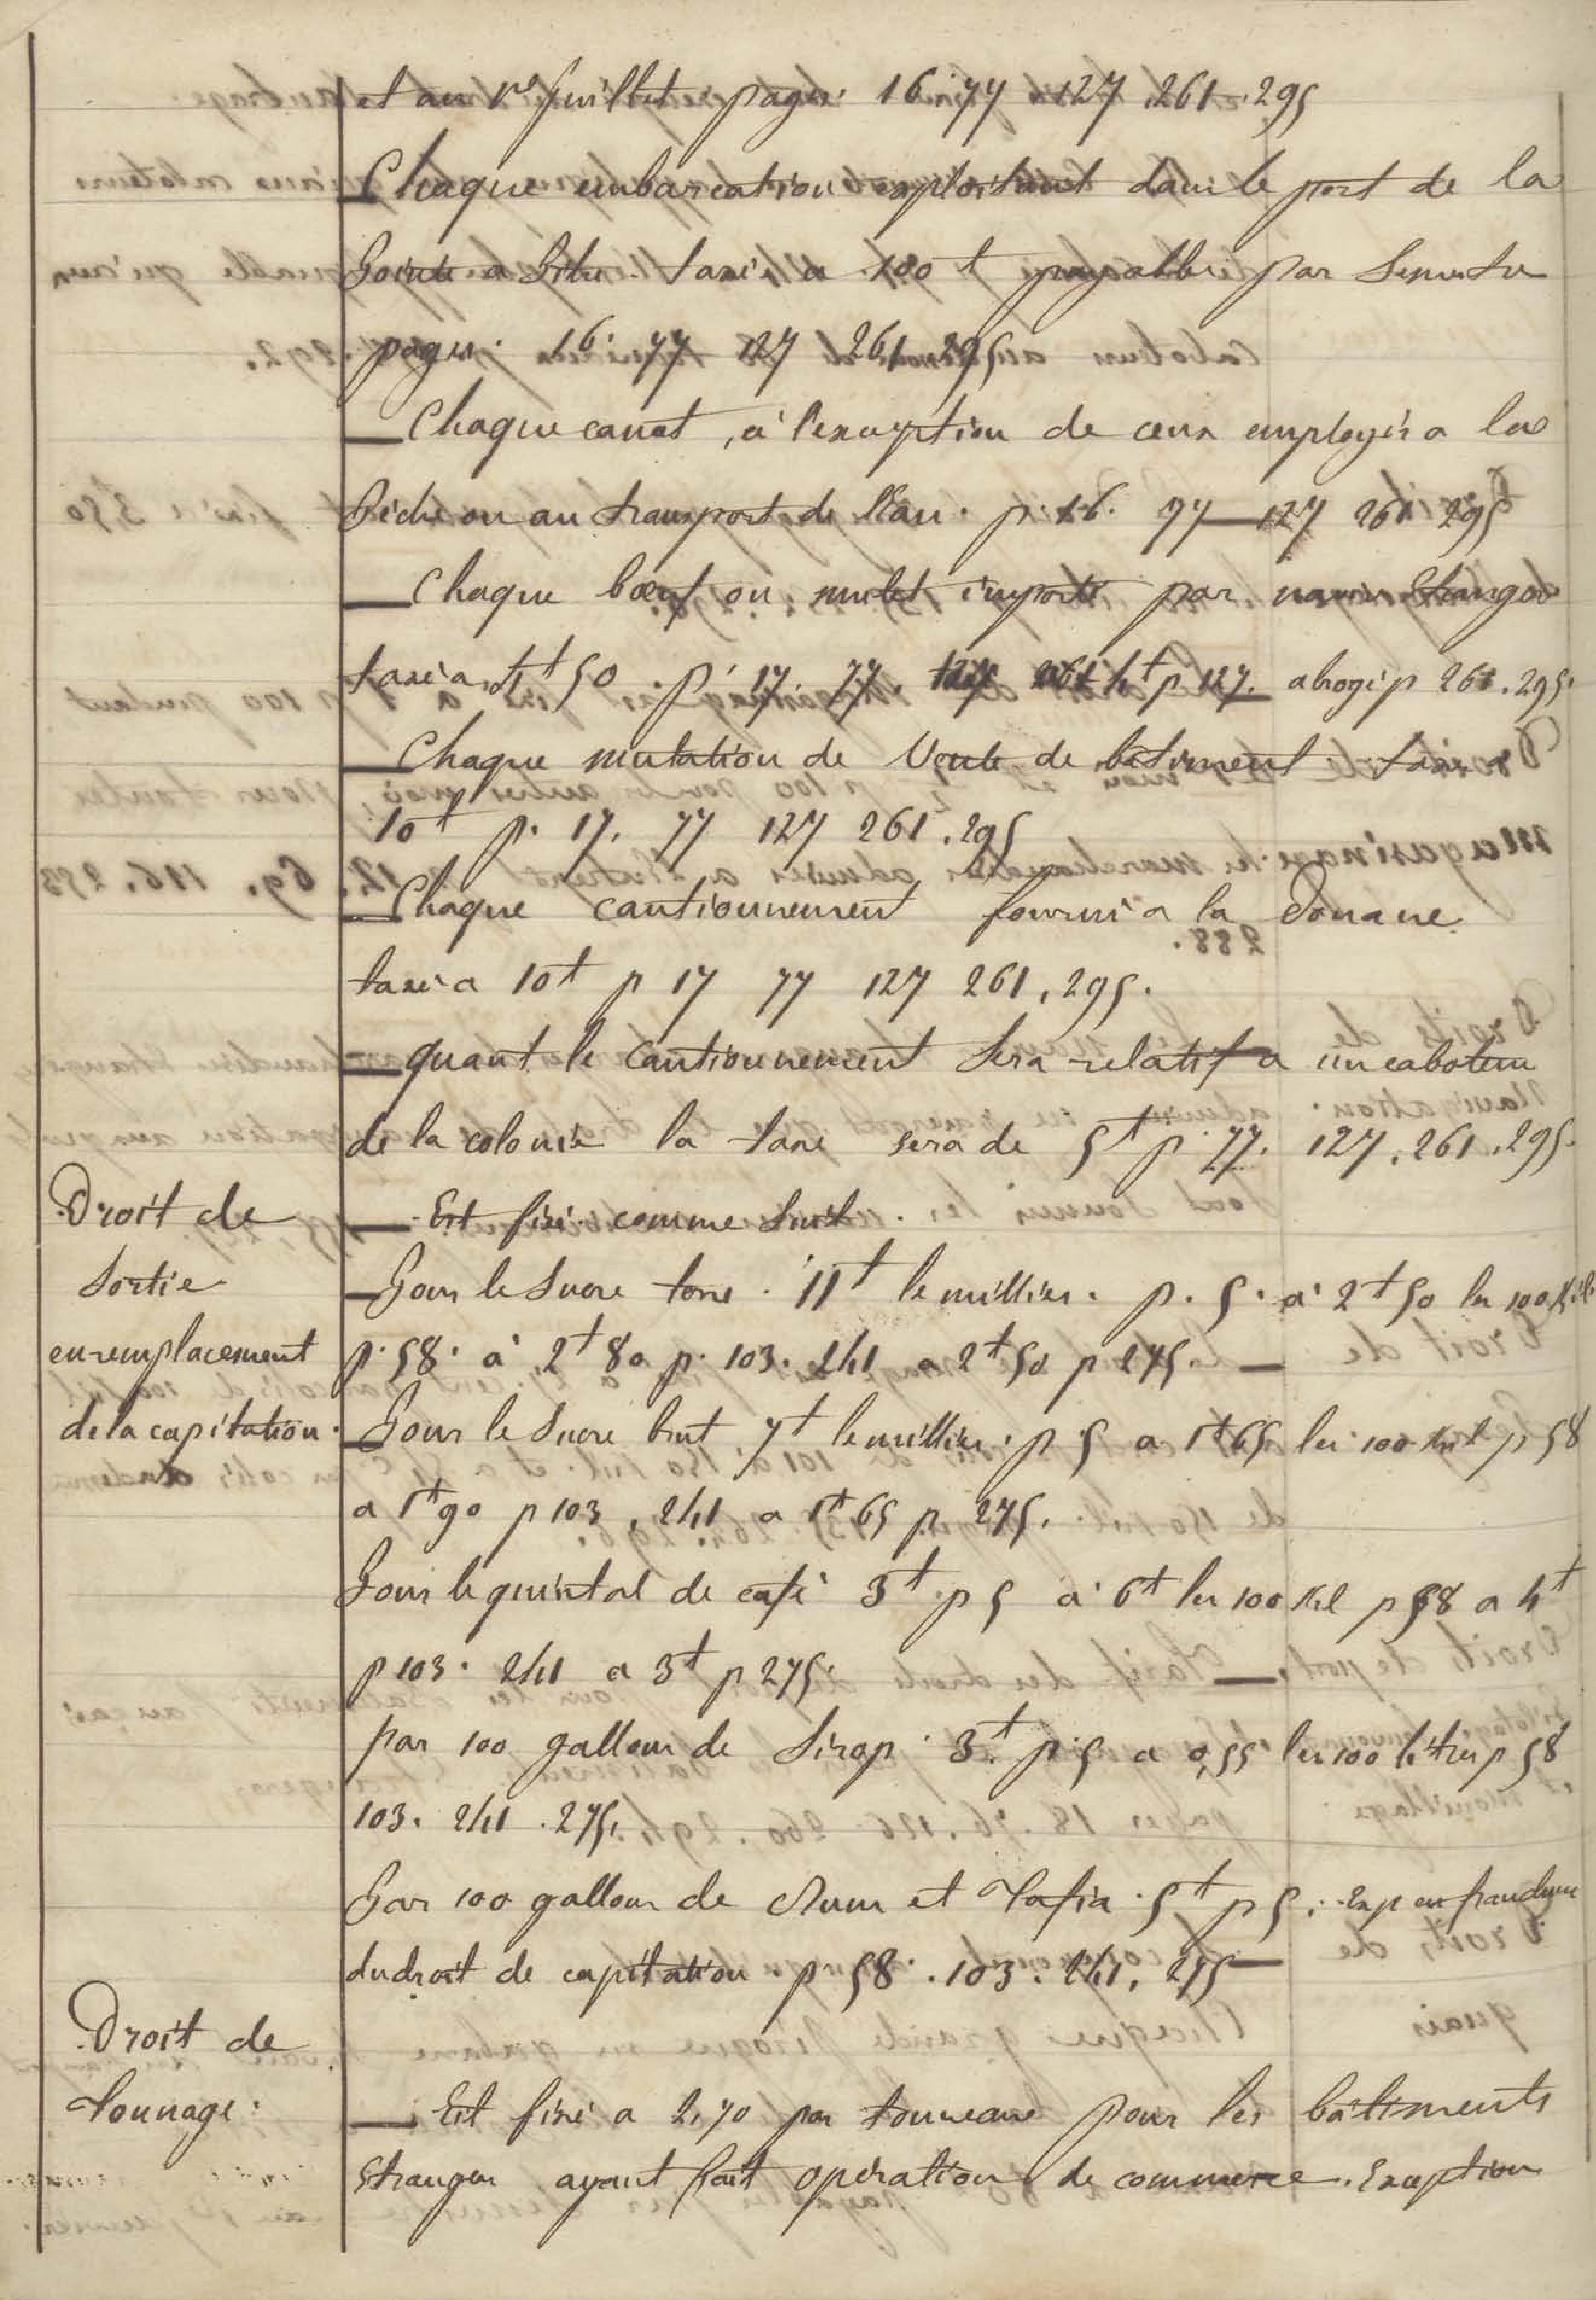 et au 1er Juillet pages 16. 77 127. 261. 295
— Chaque embarcation exploitant dans le port de la
Pointe a Pitre. taxé a 100 f payables par Semestre
pages. 16. 77 127 261. 295
— Chaque canot, à l'exception de ceux employés a la
Pêche ou au transport de l'Eau. p. 16. 77 — 127 261 295
— Chaque bœuf ou mulet importé par navire Etranger
taxé a f 50. p. 17. 77. 4f p 127. — abrogé p 261. 295.
— Chaque mutation de Vente de bâtiment taxé a
10f p. 17. 77 127 261. 295
— Chaque cautionnement fourni a la Douane
taxé a 10f p 17 77 127 261. 295.
— quant le cautionnement Sera relatif a un caboteur
de la colonie la taxe sera de 5f p. 77. 127. 261. 295.
Droit de
Sortie
en remplacement
de la capitation.
— Est fixé comme Suit.
— Pour le Sucre terré. 11f le millier. p. 5. à 2f 50 les 100 Kil
p. 58. à 2f 80 p. 103. 241 a 2f 50 p 275. —
— Pour le Sucre brut 7f le millier. p 5 a 1f 65 les 100 Kil p 58
a 1f 90 p 103. 241 a 1f 65 p 275.
Pour le quintal de café 3f p 5 à 6f les 100 Kil p 58 a 4f
p 103. 241 a 3f p 275. —
par 100 gallons de Sirop. 3f. p. 5 a 0,55 les 100 litres p 58
103. 241. 275.
Par 100 gallons de Rum et Tafia. 5f p 5. Exp en franchise
du droit de capitation. p 58. 103. 241. 275 —
Droit de
Tonnage.
— Est fixé a 2,70 par tonneau pour les bâtiments
Etrangers ayant fait opération de commerce. Exception